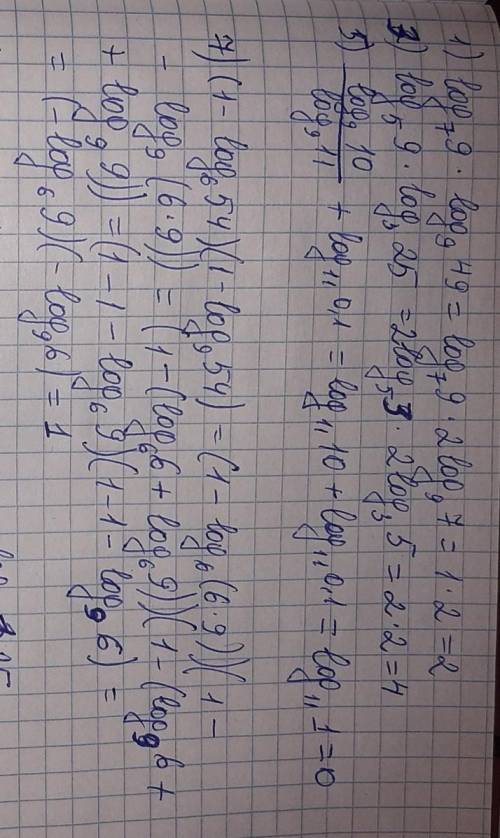 1) log₇9 · log₉49 = log₇9 · 2log₉7 = 1·2 = 2
3) log₅9 · log₃25 = 2log₅3 · 2log₃5 = 2·2 = 4
5) log₉10 / log₉11 + log₁₁0,1 = log₁₁10 + log₁₁0,1 = log₁₁1 = 0
7) (1 - log₆54)(1 - log₉54) = (1 - log₆(6·9))(1 -
- log₉(6·9)) = (1 - (log₆6 + log₆9))(1 - (log₉6 +
+ log₉9)) = (1 - 1 - log₆9)(1 - 1 - log₉6) =
= (-log₆9)(-log₉6) = 1